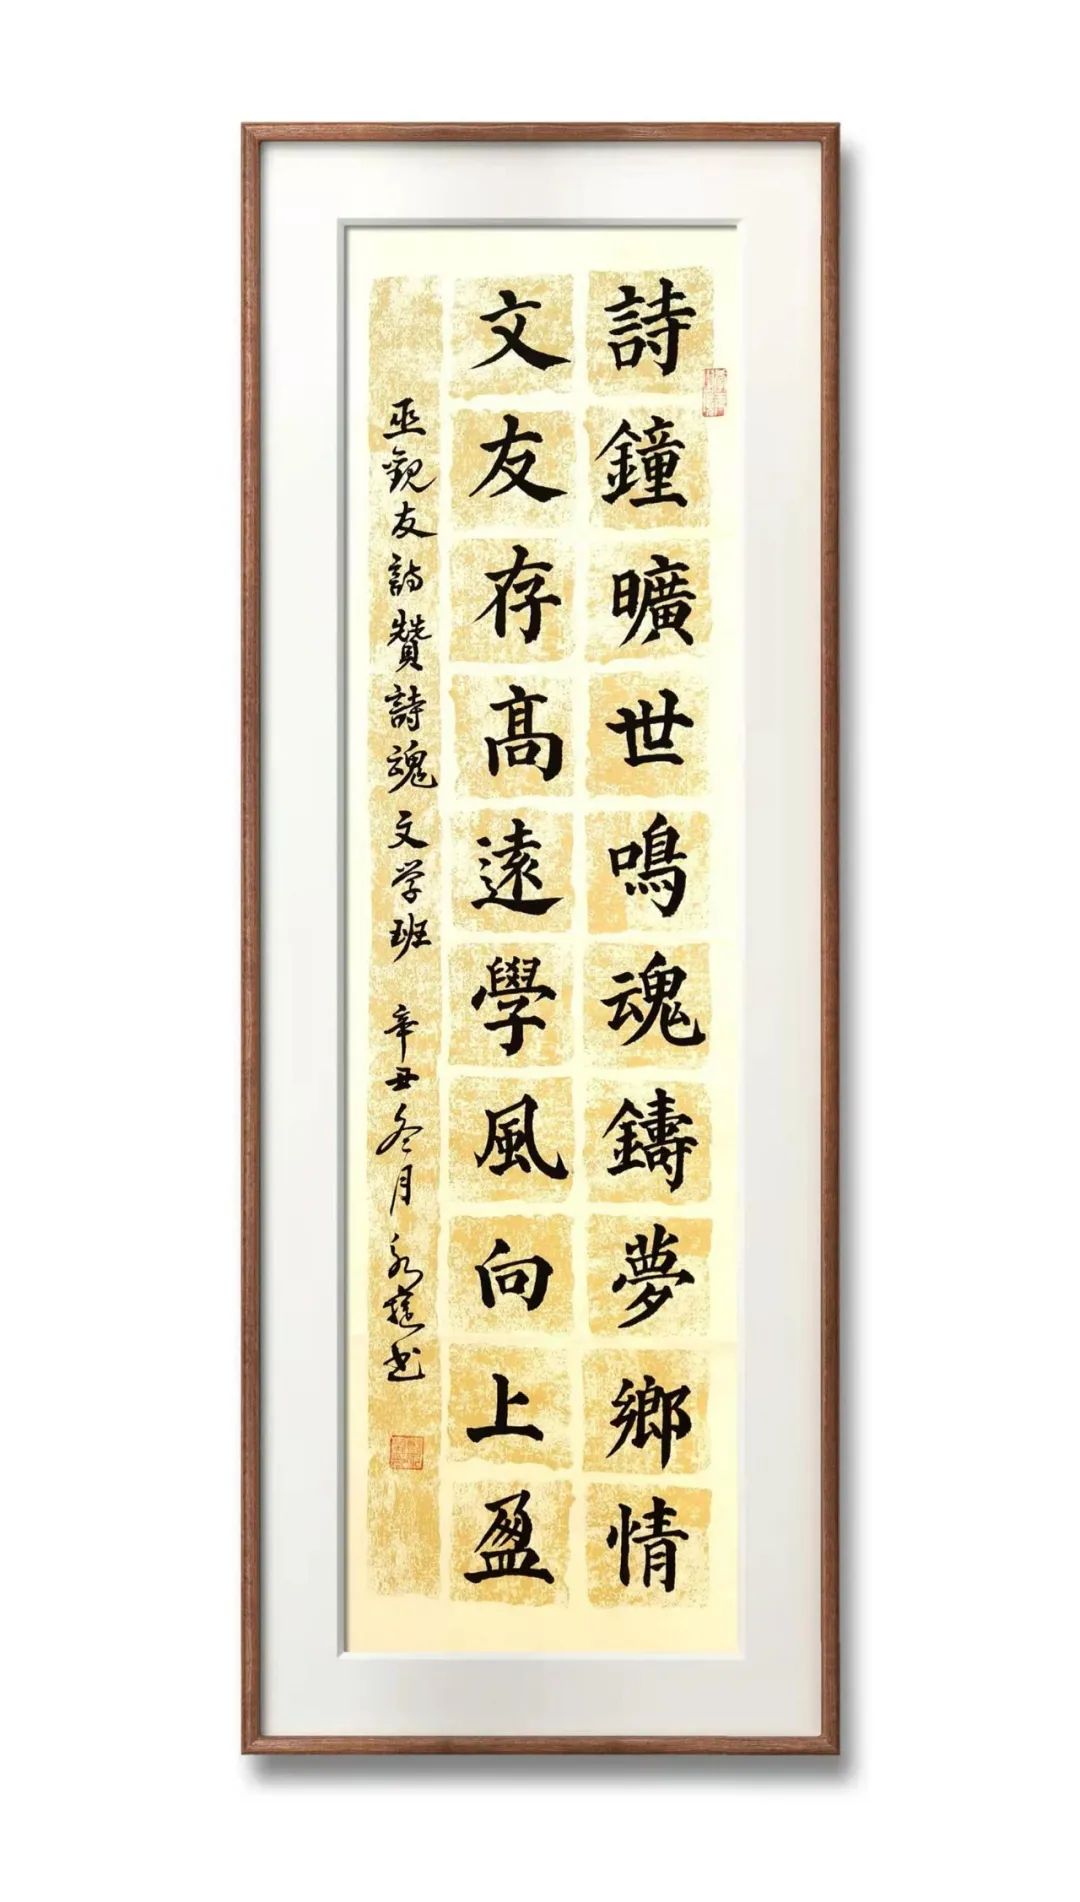 詩鐘曠世鳴魂鑄夢鄉情
文友存高遠學風向上盈
巫觀友詩贊詩魂文学班 辛丑冬月永
书